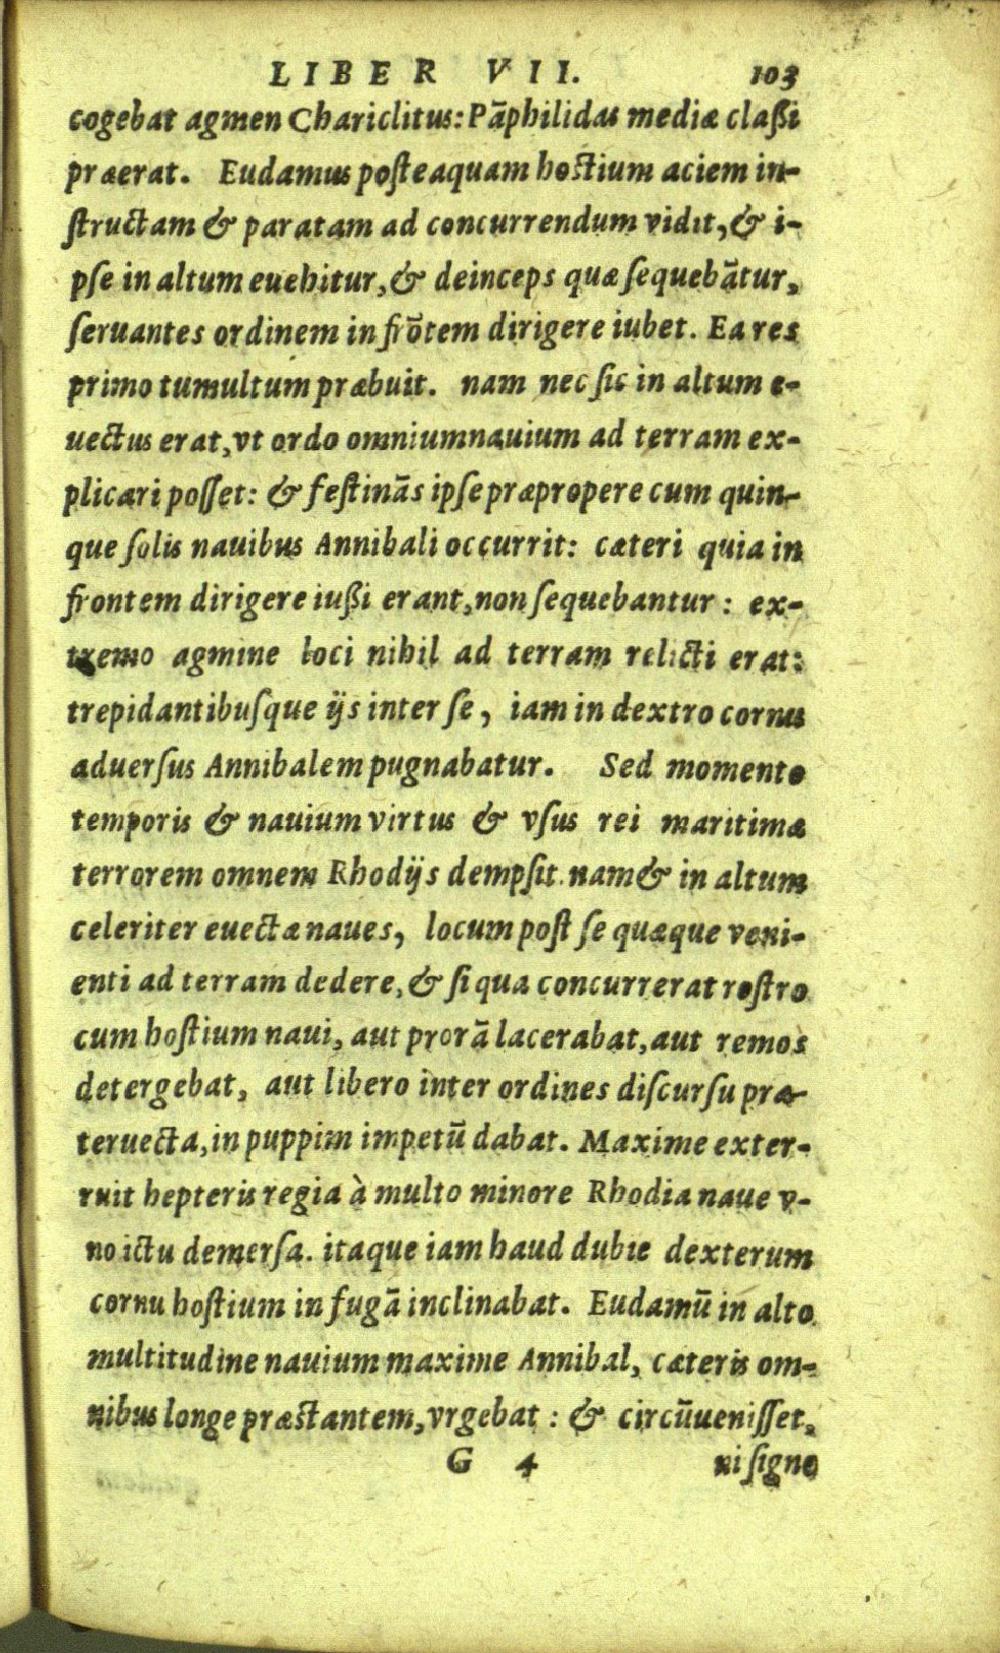 LIBER VII. 103
cogebat agmen Chariclitus: Pāphilidas mediæ claßi
præerat. Eudamus poſteaquam hostium aciem in-
ſtructam & paratam ad concurrendum vidit, & i-
pſe in altum euehitur, & deinceps quæ ſequebātur,
ſeruantes ordinem in frōtem dirigere iubet. Ea res
primo tumultum præbuit. nam nec ſic in altum e-
uectus erat, vt ordo omnium nauium ad terram ex-
plicari poſſet: & feſtinās ipſe præpropere cum quin-
que ſolis nauibus Annibali occurrit: cæteri quia in
frontem dirigere iußi erant, non ſequebantur: ex-
tremo agmine loci nihil ad terram relicti erat:
trepidantibuſque ijs inter ſe, iam in dextro cornu
aduerſus Annibalem pugnabatur. Sed momento
temporis & nauium virtus & vſus rei maritimæ
terrorem omnem Rhodijs dempſit. nam & in altum
celeriter euectæ naues, locum poſt ſe quæque veni-
enti ad terram dedere, & ſi qua concurrerat roſtro
cum hoſtium naui, aut prorā lacerabat, aut remos
detergebat, aut libero inter ordines diſcurſu præ-
teruecta, in puppim impetū dabat. Maxime exter-
ruit hepteris regia à multo minore Rhodia naue v-
no ictu demerſa. itaque iam haud dubie dexterum
cornu hoſtium in fugā inclinabat. Eudamū in alto
multitudine nauium maxime Annibal, cæteris om-
nibus longe præstantem, vrgebat: & circūueniſſet,
G 4 ni ſigno